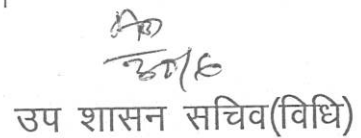 उप शासन सचिव(विधि)